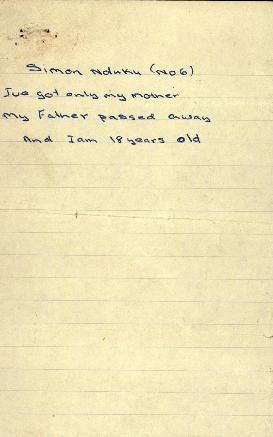 Simon Nduku (No6)
Ive got only my mother
my Father passed away
And I am 18 years old